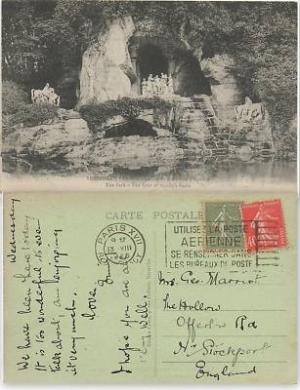 The Park - The Grove of Apollo's Baths
CARTE POSTALE
Wednesday
We have been here today
It is too wonderful to ever
talk about, am enjoying
it very much.
Love
I hope you are all
Well.
PARIS XVII
VIII
UTILISEZ LA POSTE
AERIENNE
SE RENSEIGNER DANS
LES BUREAUX DE POSTE
Mrs. Geo. Marriott
The Hollow
Offerton Rd
Nr Stockport
England